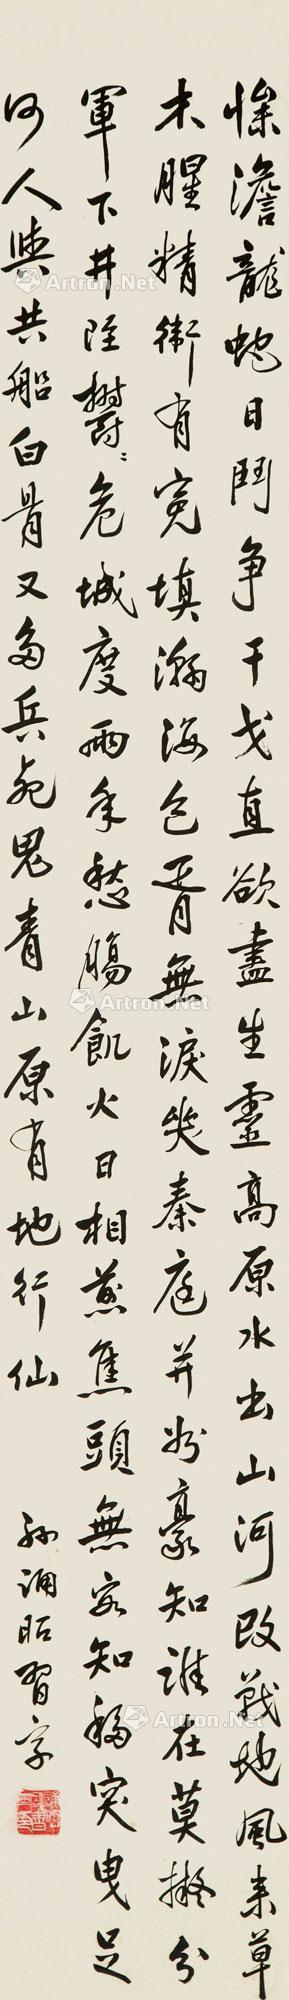 慘澹龍蛇日鬥争干戈直欲盡生靈高原水出山河改戰地風来草
木腥精衛有冤填瀚海包胥無淚哭秦庭并州豪知誰在莫擬分
軍下井陘鬱〻危城度兩年愁腸飢火日相煎焦頭無客知移突曳足
何人與共船白骨又多兵死鬼青山原有地行仙
孫誦昭習字
Artron.Net
Artron.Net
Artron.Net
Artron.Net